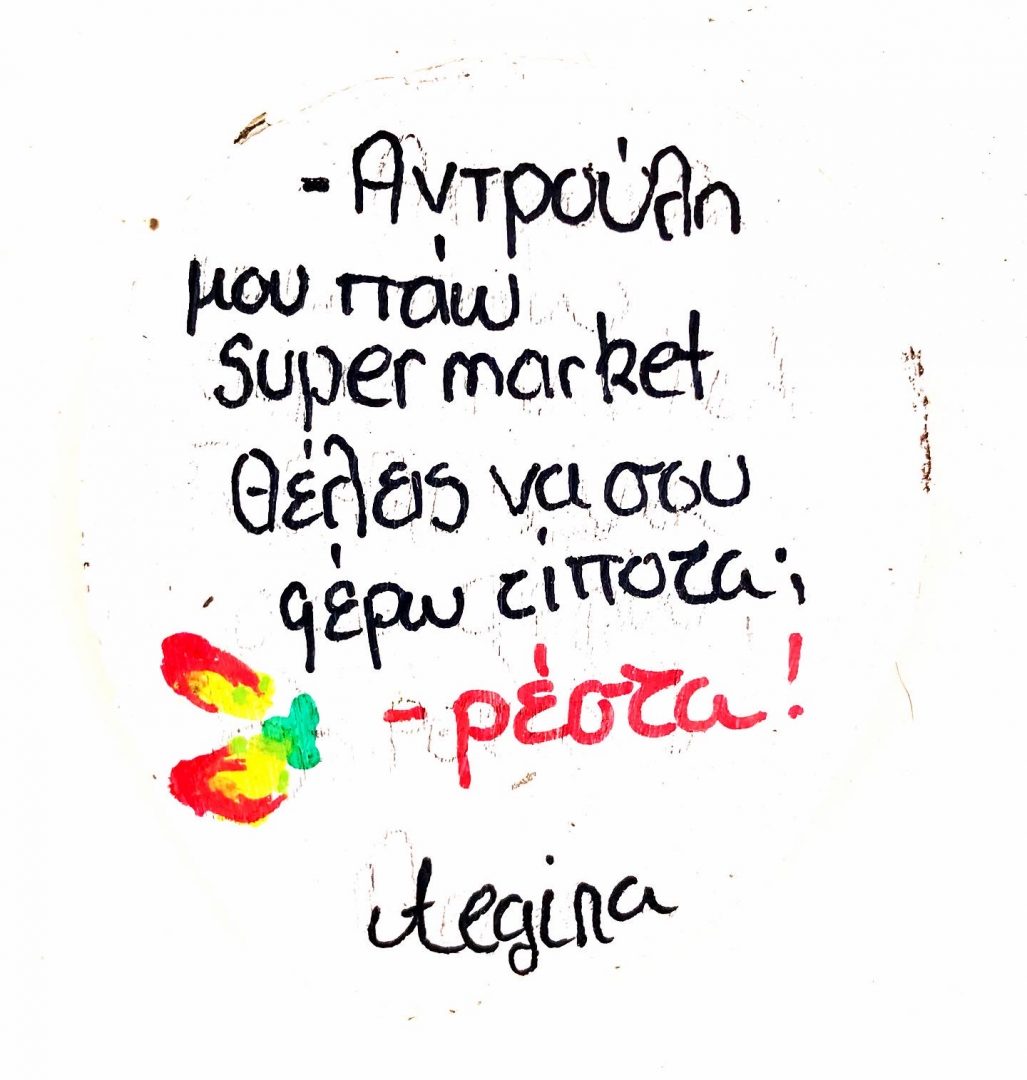 - Αντρούλη
μου πάω
super market
θέλεις να σου
φέρω τίποτα;
- ρέστα!
Aegina